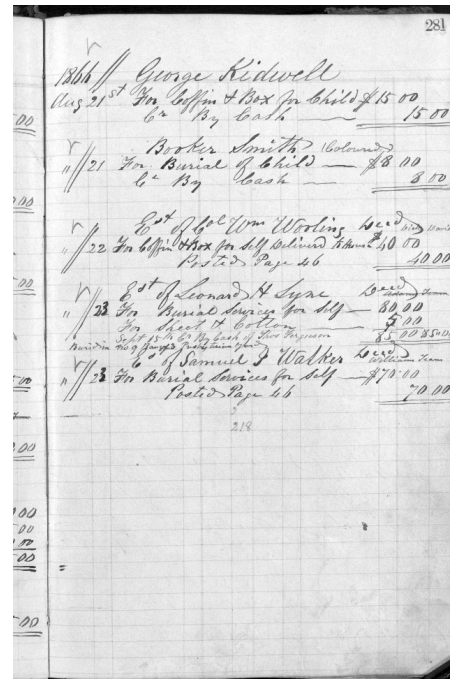 281
1866 // George Kidwell
Aug 21st For Coffin & Box for Child $15 00
Cr By Cash — 15 00
Booker Smith (Coloured)
" // 21 For Burial of Child — $8 00
Cr By Cash — 8 00
Est of Col Wm Decd
" // 22 For Coffin & Box for Self Delivered 40 00
Posted Page 46 40 00
Est of Leonard H Syne Decd
" // 23 For Burial Services for Self — 80.00
For Sheet & Cotton 5 00
Sept 15th Cr By Cash of Thos Ferguson 85 00 85 00
Buried in
Est of Samuel J Walker Decd
" // 23 For Burial Services for Self — $70.00
Posted Page 46 70.00
218